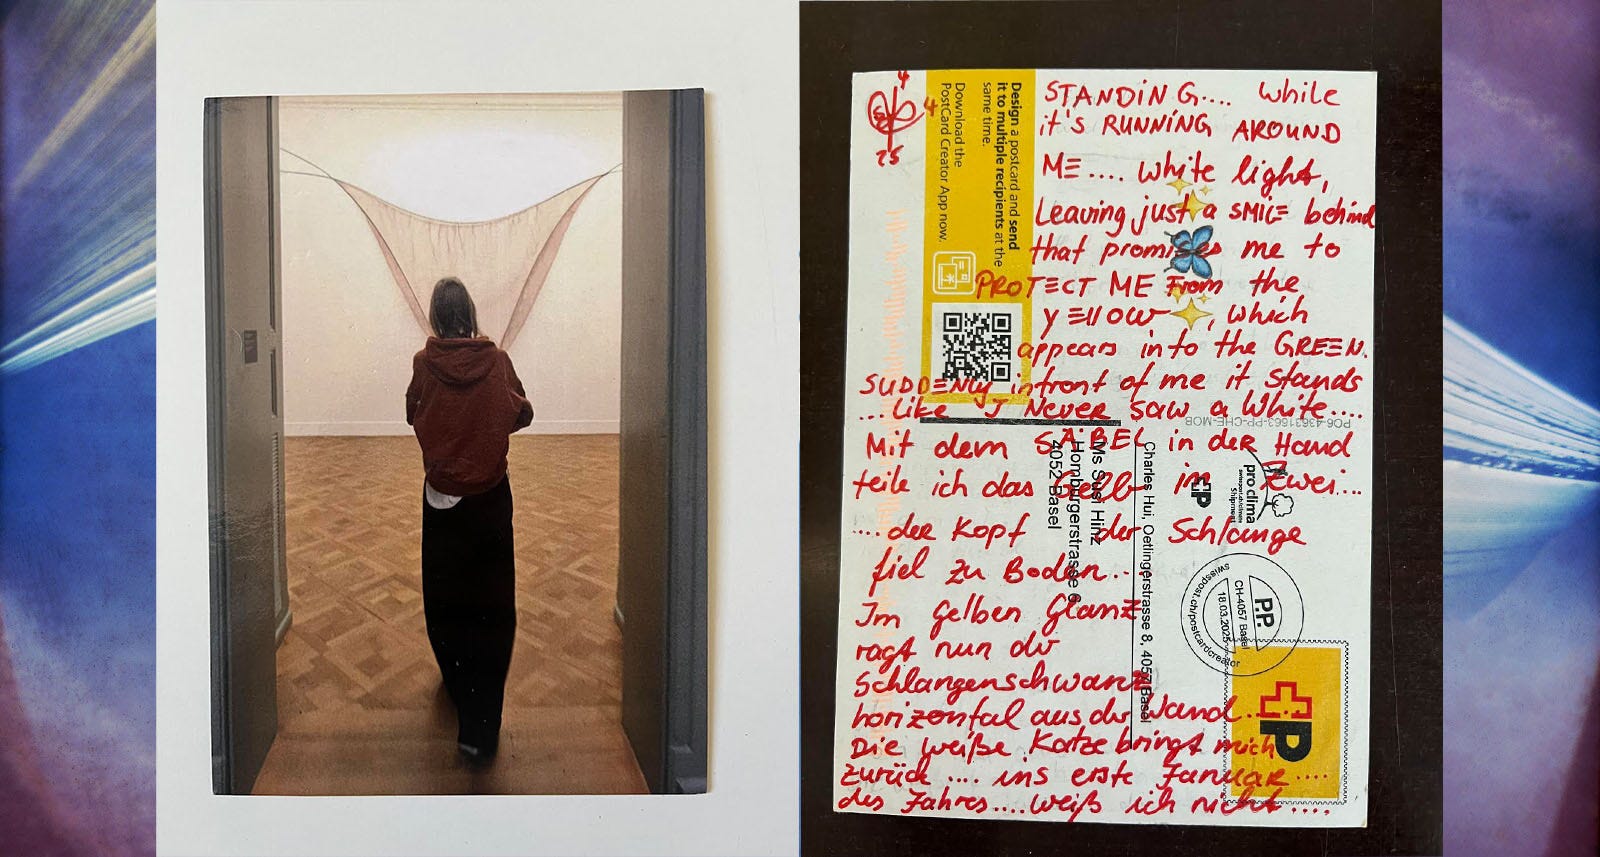 STANDING.... while
it's RUNNING AROUND
ME.... white light,
Leaving just a SMILE behind
that promises me to
PROTECT ME From the
yellow, which
appears into the GREEN.
SUDDENLY infront of me it stands
...like I Never saw a White....
Mit dem SÄBEL in der Hand
teile ich das Gelb in Zwei...
....der Kopf der Schlange
fiel zu Boden...
Im gelben Glanz
ragt nun der
Schlangenschwanz
horizontal aus der Wand.....
Die weiße Katze bringt mich
zurück .... ins erste Januar ....
des Jahres....weiß ich nicht....
4
4
25
Design a postcard and send
it to multiple recipients at the
same time.
Download the
PostCard Creator App now.
PO6-43631663-PP-CHE-MOB
Ms Susi Hinz
Homburgerstrasse 6
4052 Basel
Charles Hui, Oetlingerstrasse 8, 4057 Basel
pro clima
Shipment
P.P.
CH-4057 Basel
18.03.2025
swisspost.ch/postcardcreator
P